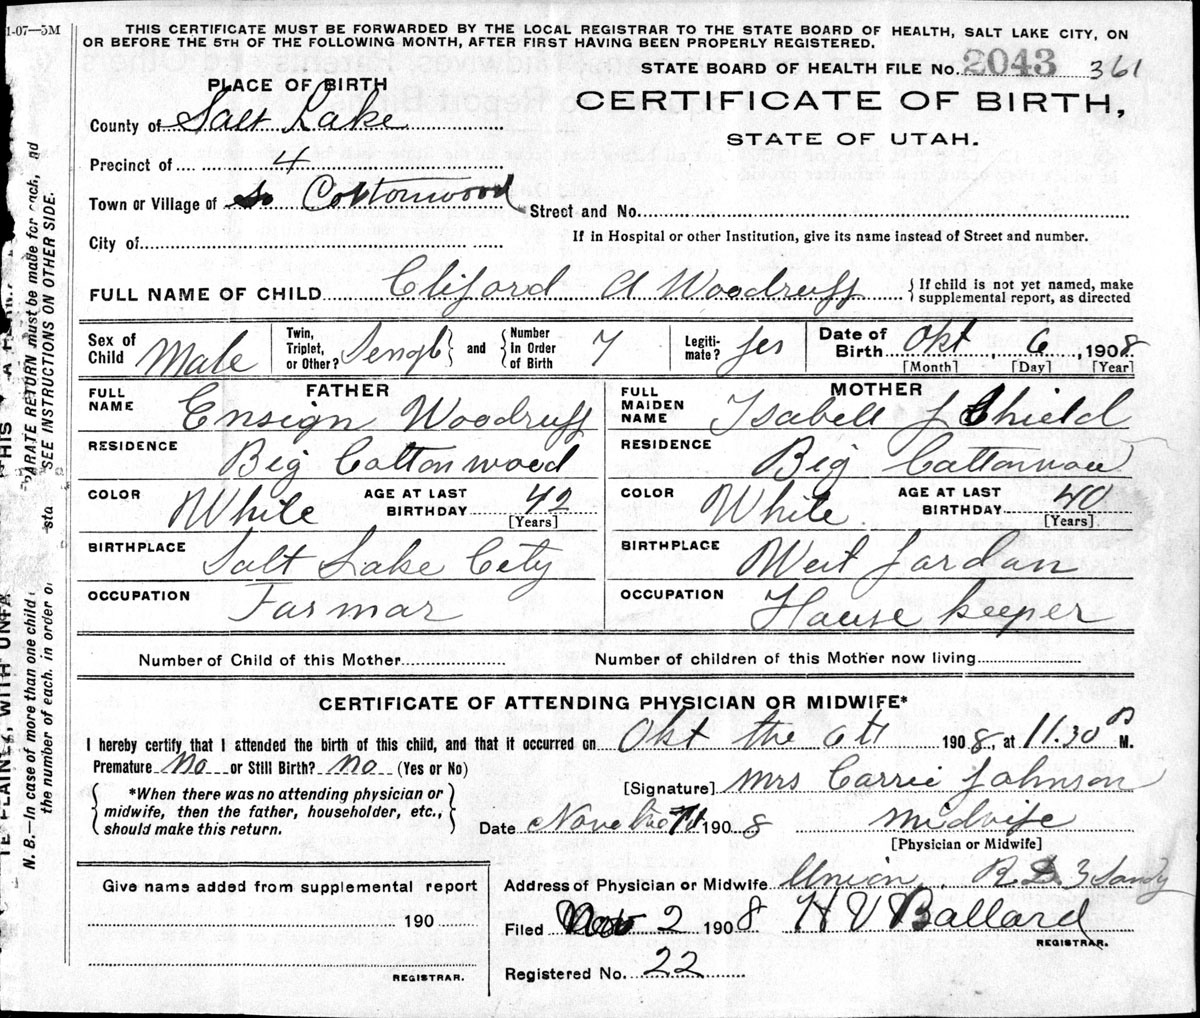 1-07—5M
THIS CERTIFICATE MUST BE FORWARDED BY THE LOCAL REGISTRAR TO THE STATE BOARD OF HEALTH, SALT LAKE CITY, ON
OR BEFORE THE 5TH OF THE FOLLOWING MONTH, AFTER FIRST HAVING BEEN PROPERLY REGISTERED.
STATE BOARD OF HEALTH FILE No. 2043 361
PLACE OF BIRTH
CERTIFICATE OF BIRTH,
STATE OF UTAH.
County of Salt Lake
Precinct of 4
Town or Village of So Cottonwood Street and No.
City of If in Hospital or other Institution, give its name instead of Street and number.
FULL NAME OF CHILD Cliford A Woodruff { If child is not yet named, make supplemental report, as directed
Sex of Child Male Twin, Triplet, or Other? Sengl } and { Number in Order of Birth 7 Legiti-mate? Jes Date of Birth Okt 6, 1908
[Month] [Day] [Year]
FATHER MOTHER
FULL NAME Ensign Woodruff FULL MAIDEN NAME Isabell J Shield
RESIDENCE Big Cottonwood RESIDENCE Big Cottonwood
COLOR White AGE AT LAST BIRTHDAY 42 [Years] COLOR White AGE AT LAST BIRTHDAY 40 [Years]
BIRTHPLACE Salt Lake Cety BIRTHPLACE West Jordan
OCCUPATION Farmar OCCUPATION House keeper
Number of Child of this Mother Number of children of this Mother now living
CERTIFICATE OF ATTENDING PHYSICIAN OR MIDWIFE*
I hereby certify that I attended the birth of this child, and that it occurred on Okt the 6th 1908, at 11.30 P M.
Premature No or Still Birth? No (Yes or No)
[Signature] Mrs Carrie Johnson
*When there was no attending physician or midwife, then the father, householder, etc., should make this return.
Date 1908 Midwife
[Physician or Midwife]
Give name added from supplemental report
190
REGISTRAR.
Address of Physician or Midwife Union, R D 3 Sandy
Filed Nov 2 1908 H V Ballard
REGISTRAR.
Registered No. 22
N. B.—In case of more than one child
ARATE RETURN must be made for each, and
the number of each, in order o
SEE INSTRUCTIONS ON OTHER SIDE.
PLAINLY, WITH UNFA
THIS